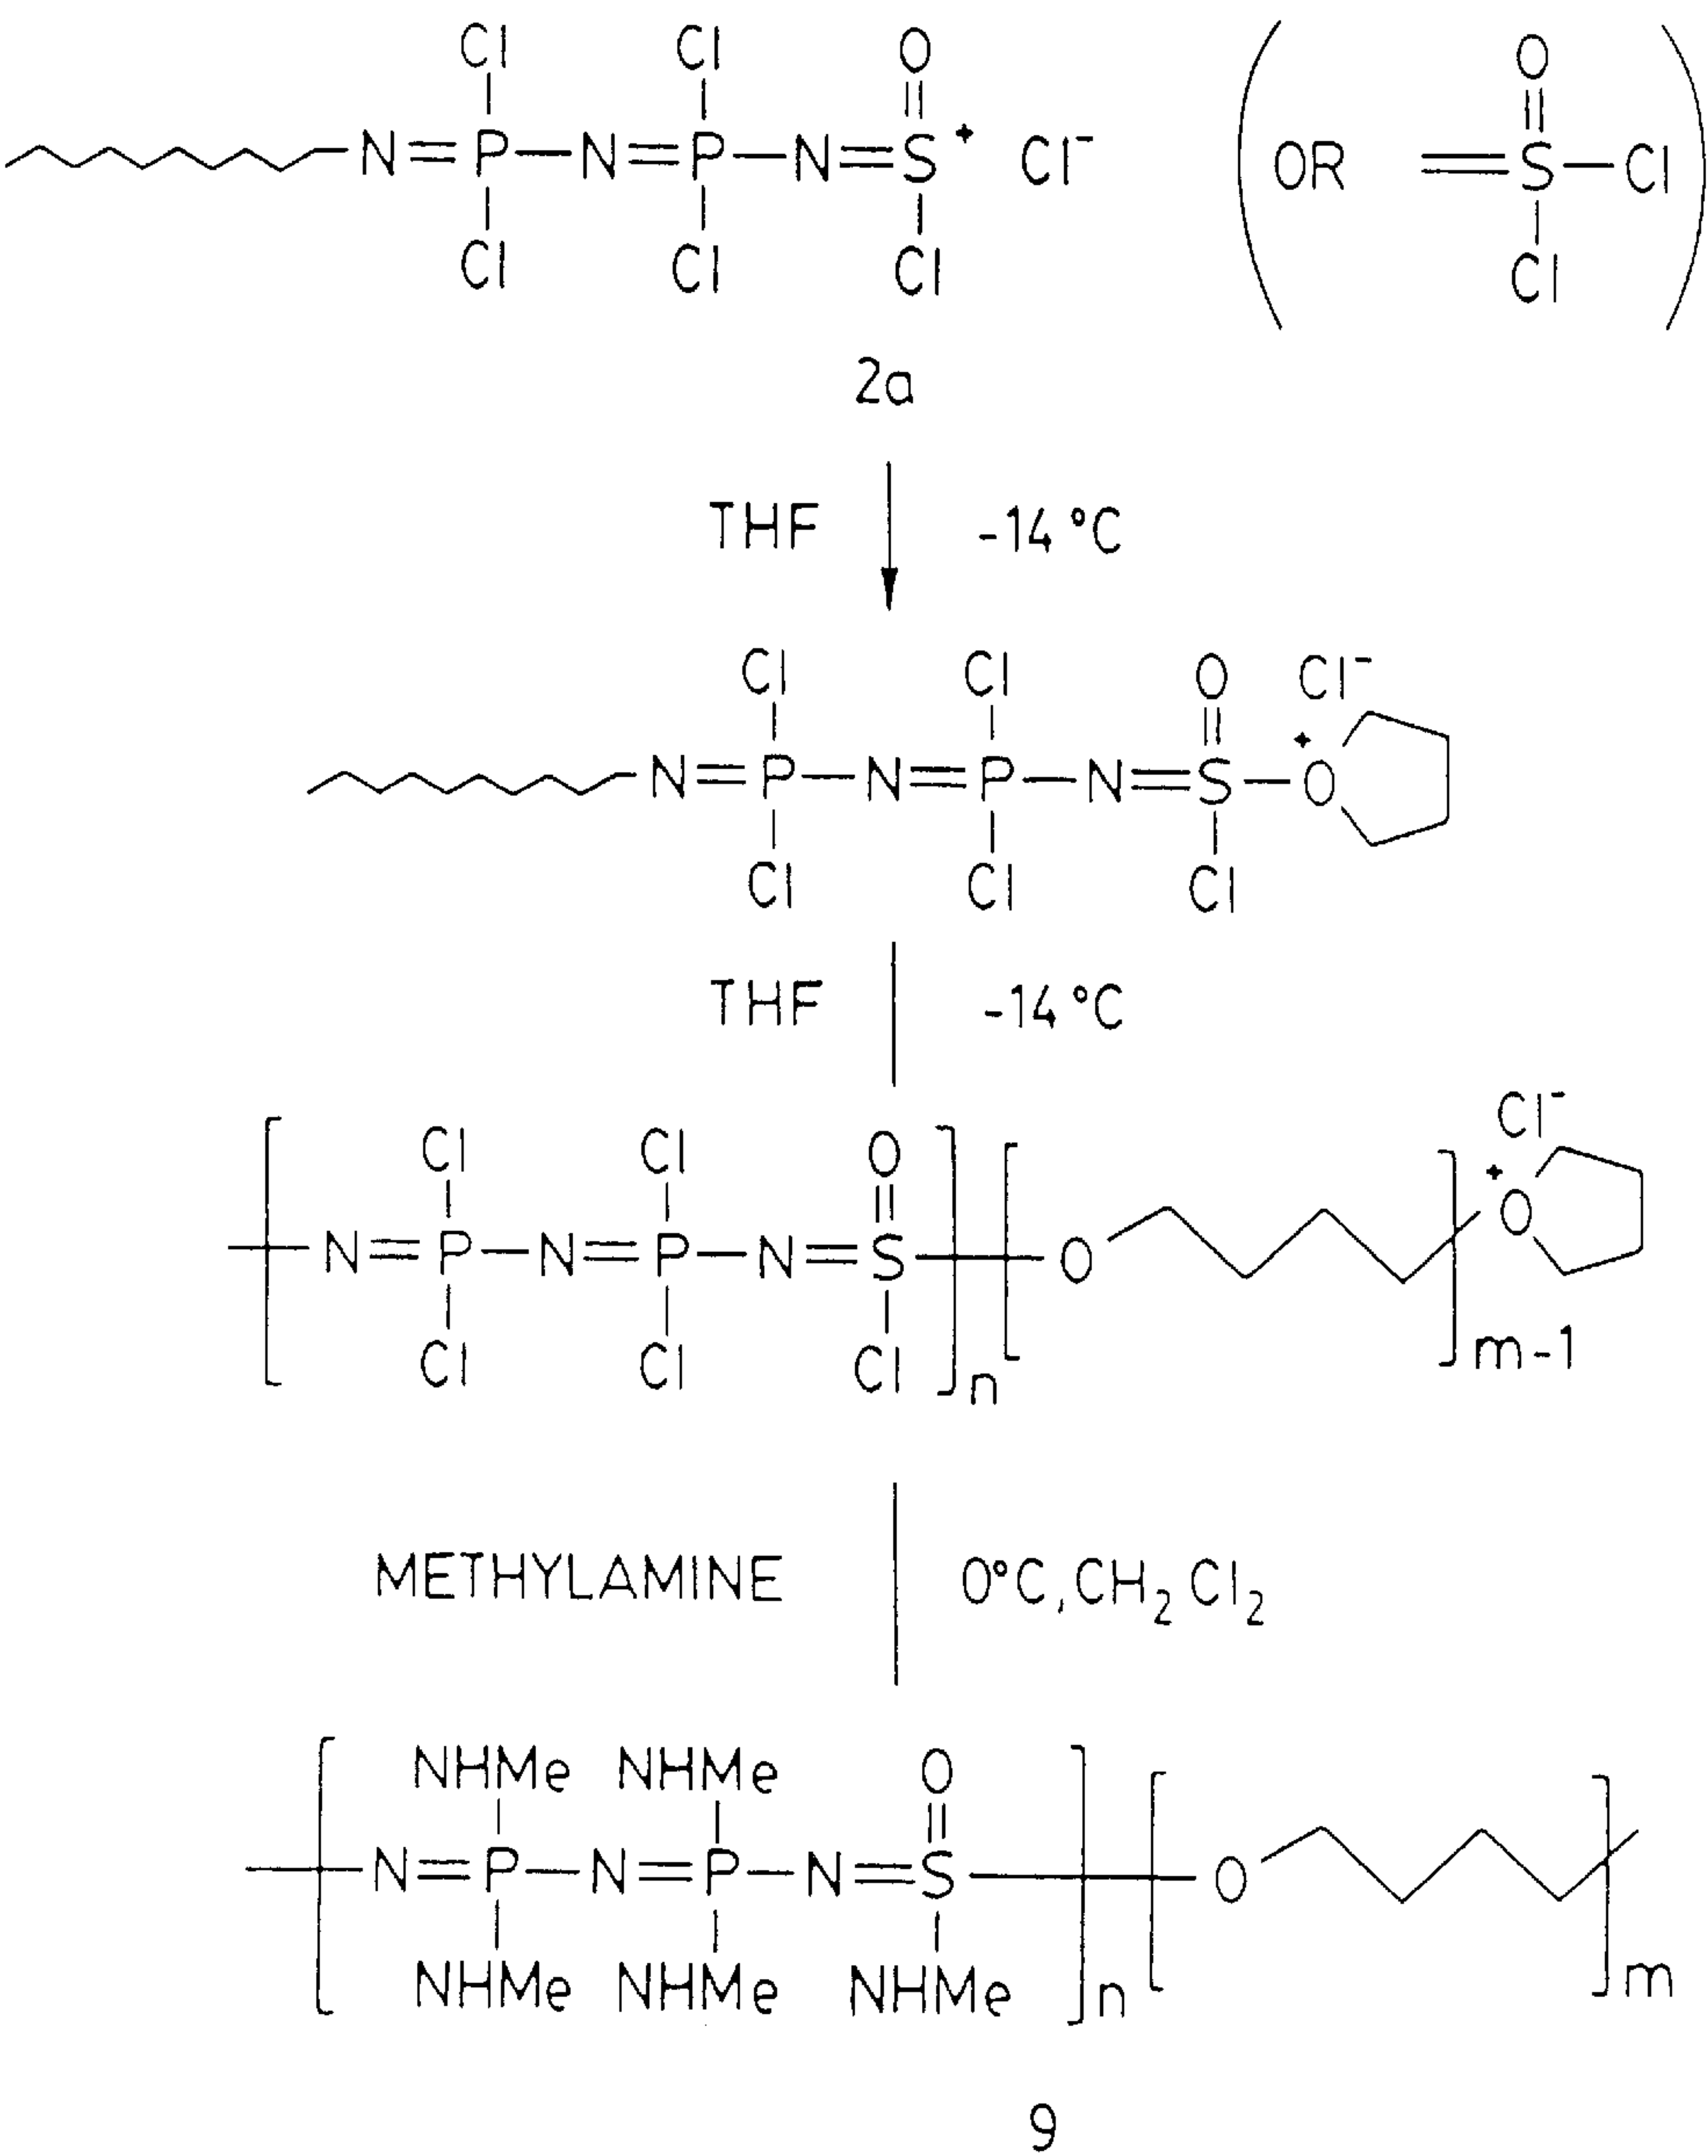 Cl Cl O O
N=P—N=P—N=S⁺ Cl⁻ (OR =S—Cl)
Cl Cl Cl Cl
2a
THF -14 °C
Cl Cl O Cl⁻
N=P—N=P—N=S—O⁺
Cl Cl Cl
THF -14 °C
Cl Cl O Cl⁻
[N=P—N=P—N=S]n [O]m-1 O⁺
Cl Cl Cl
METHYLAMINE 0°C, CH₂Cl₂
NHMe NHMe O
[N=P—N=P—N=S]n [O]m
NHMe NHMe NHMe
9